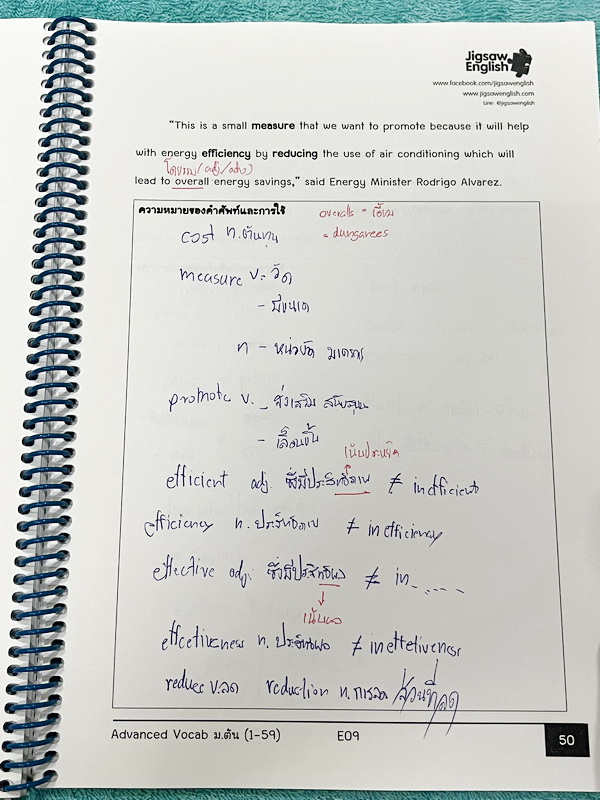 Jigsaw
English
www.facebook.com/jigsawenglish
www.jigsawenglish.com
Line @jigsawenglish
"This is a small measure that we want to promote because it will help
with energy efficiency by reducing the use of air conditioning which will
โดยรวม (adj/adv)
lead to overall energy savings," said Energy Minister Rodrigo Alvarez.
ความหมายของคำศัพท์และการใช้
overalls = เอี๊ยม
= dungarees
cost n. ต้นทุน
measure v. วัด
- มีขนาด
n - หน่วยวัด มาตรการ
promote v. - ส่งเสริม สนับสนุน
- เลื่อนขั้น
เน้นประหยัด
efficient adj. ซึ่งมีประสิทธิภาพ ≠ inefficient
efficiency n. ประสิทธิภาพ ≠ inefficiency
effective adj. ซึ่งมีประสิทธิผล ≠ in.....
เน้นผล
effectiveness n. ประสิทธิผล ≠ ineffectiveness
reduce v. ลด reduction n. การลด / ส่วนที่ลด
Advanced Vocab ม.ต้น (1-59) E09 50